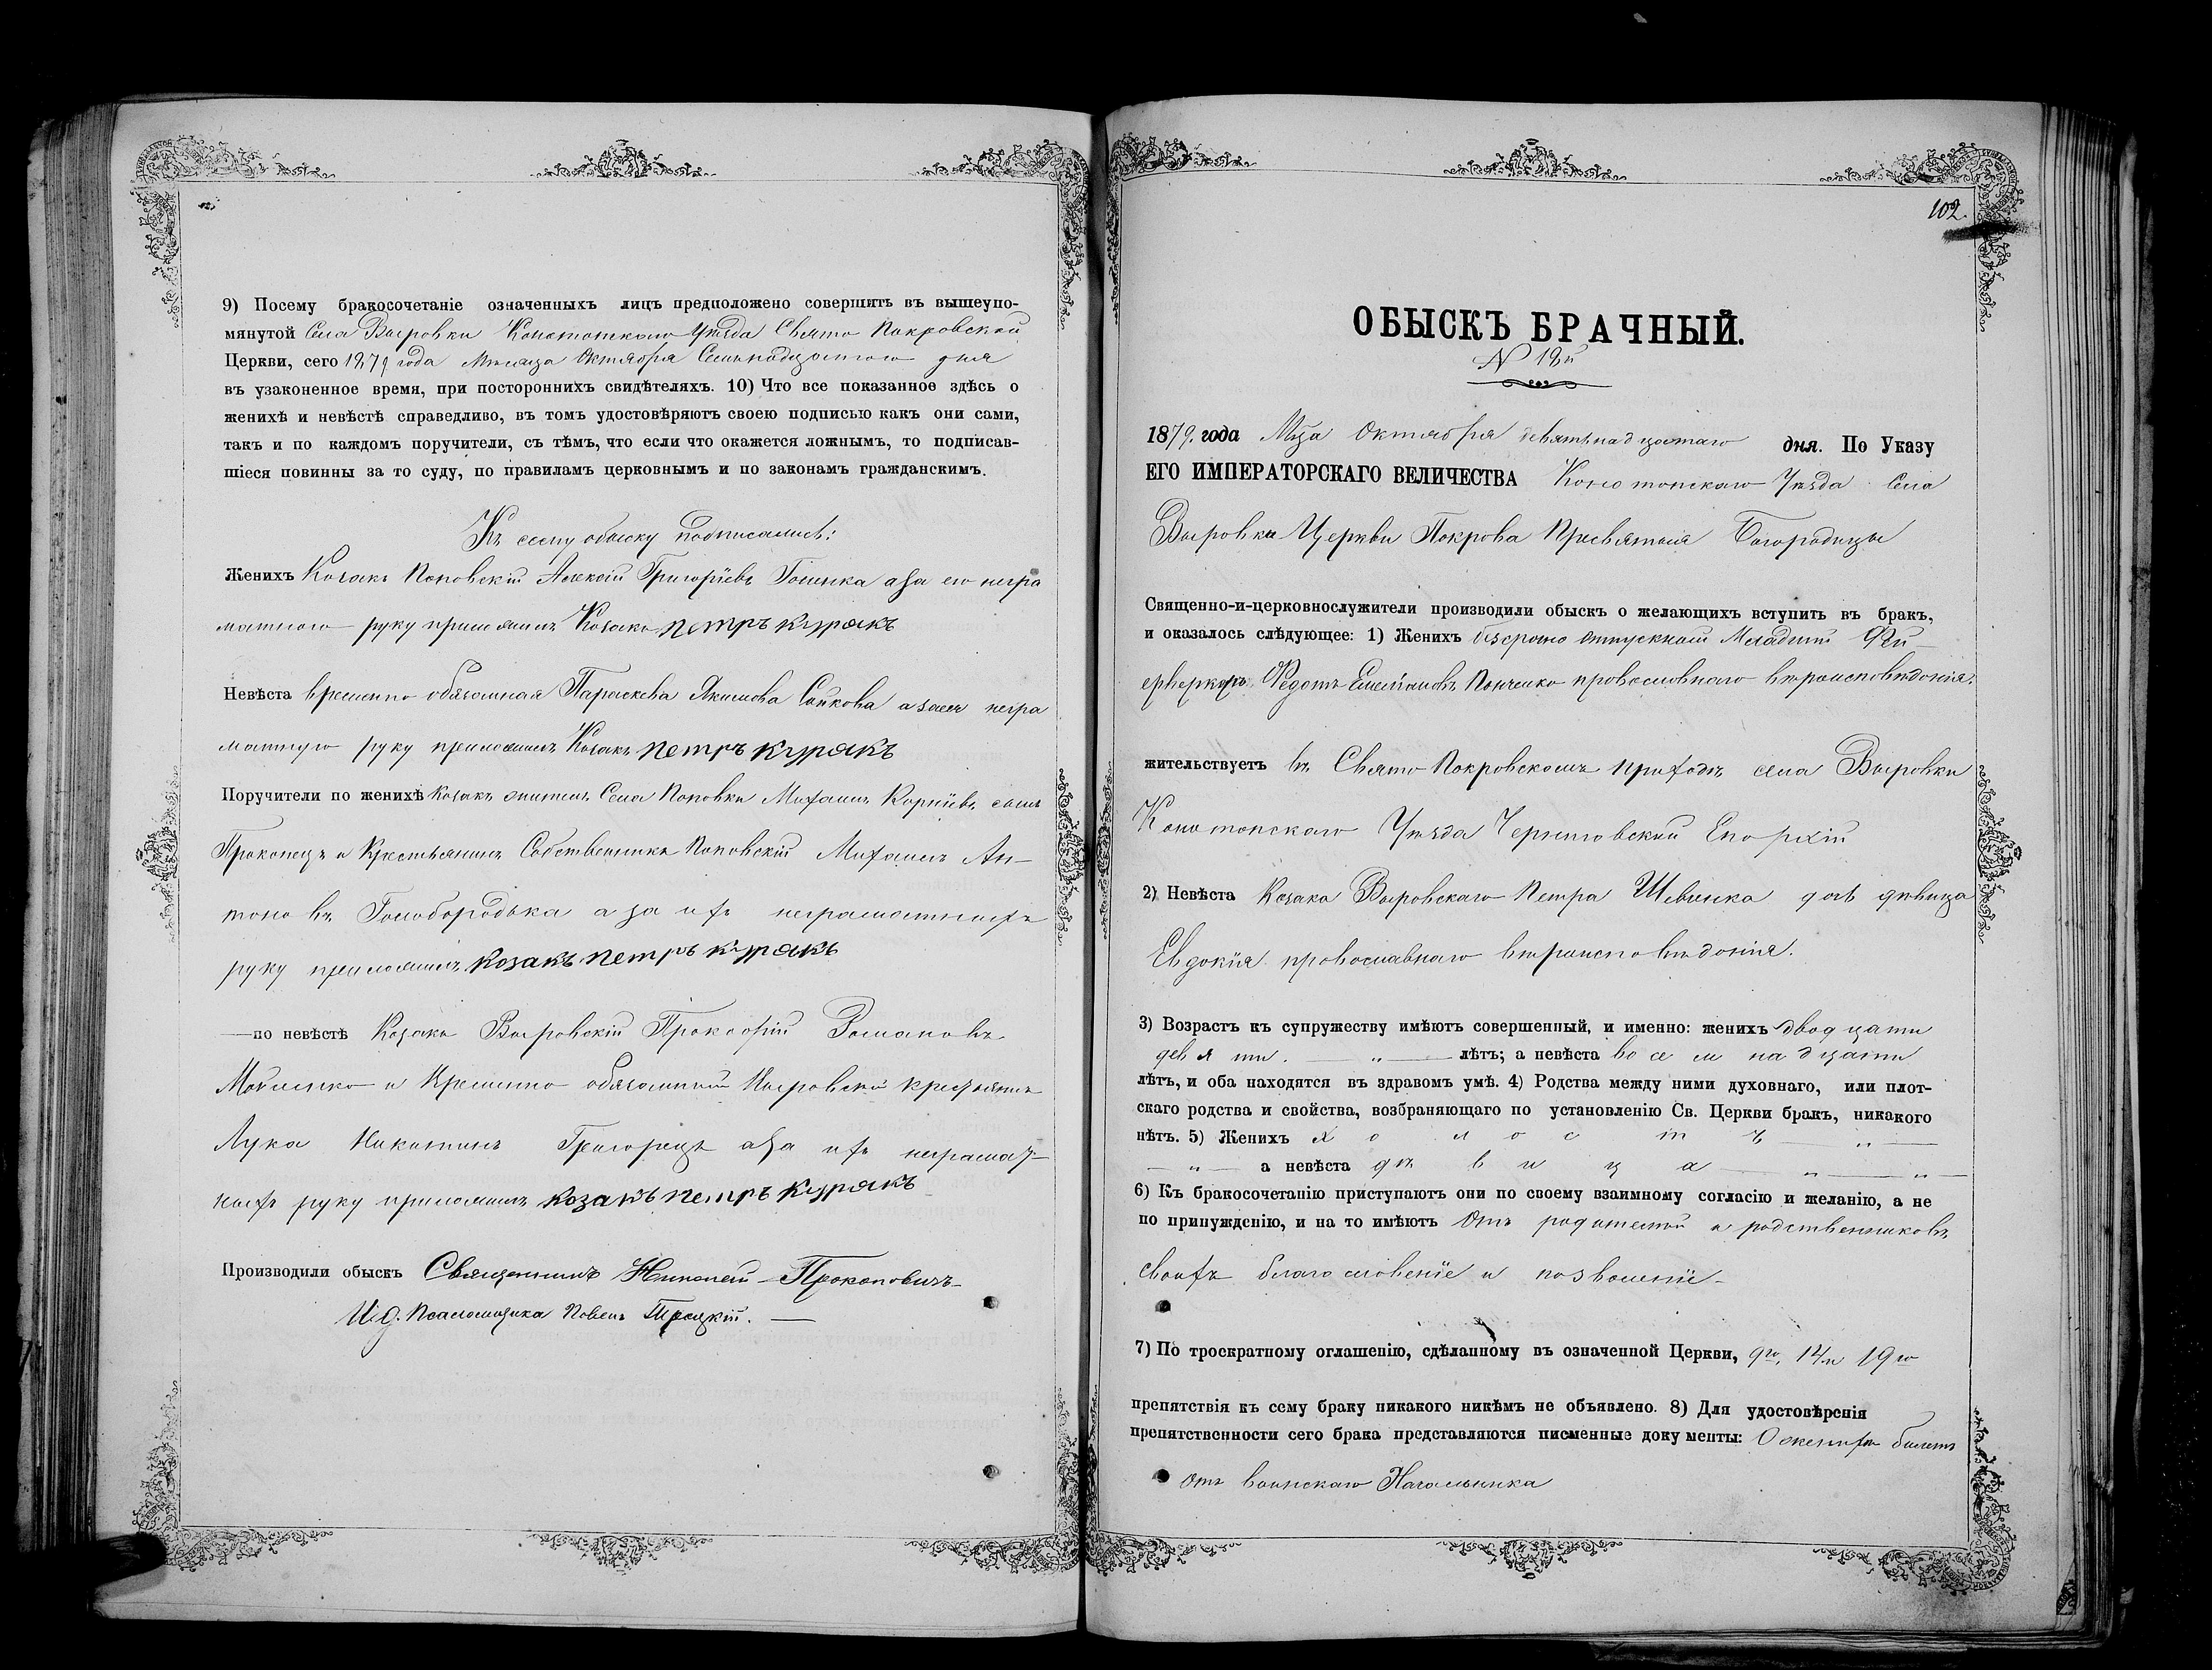 9) Посему бракосочетаніе означенныхъ лицъ предположено совершить въ вышеупо-
мянутой Села Выровки Конотопскаго Уѣзда Свято Покровской
Церкви, сего 1879 года Мѣсяца Октября Семьнадцатого дня
въ узаконенное время, при постороннихъ свидѣтеляхъ. 10) Что все показанное здѣсь о
женихѣ и невѣстѣ справедливо, въ томъ удостовѣряютъ своею подписью какъ они сами,
такъ и по каждомъ поручители, съ тѣмъ, что если что окажется ложнымъ, то подписав-
шіеся повинны за то суду, по правиламъ церковнымъ и по законамъ гражданскимъ.
Къ сему обыску подписались:
Женихъ Козакъ Поповскій Алексій Григоріевъ а за его негра
матного руку приложилъ Козакъ петръ курякъ
Невѣста временно обязанная Параскева Якимова а за ея негра
матную руку приложилъ Козакъ петръ курякъ
Поручители по женихѣ Козакъ житель Села Поповки Михаилъ Корніевъ сынъ
Прокопецъ и Крестьянинъ Собственникъ Поповскій Михаилъ Ан-
тоновъ Голобородька а за ихъ неграмотныхъ
руку приложилъ козакъ петръ курякъ
—по невѣстѣ Козакъ Выровскій Прокофій Романовъ
и Временно обязанный Выровскій крестьянинъ
Лука Никитинъ Григорецъ а за ихъ неграмат-
ныхъ руку приложилъ козакъ петръ курякъ
Производили обыскъ Священникъ Николай Прокоповичъ
И. д. Псаломщика Павелъ Троцкій. —
102.
ОБЫСКЪ БРАЧНЫЙ.
N 12й
1879. года Мца Октября девятьнадцатаго дня. По Указу
ЕГО ИМПЕРАТОРСКАГО ВЕЛИЧЕСТВА Конотопскаго Уѣзда Села
Выровки Церкви Покрова Пресвятыя Богородицы
Священно-и-церковнослужители производили обыскъ о желающихъ вступить въ бракъ,
и оказалось слѣдующее: 1) Женихъ безсрочно отпускный Младшій Фей-
ерверкеръ Федотъ Емеліановъ Панченко православнаго вѣроисповѣданія.
жительствуетъ въ Свято Покровскомъ приходѣ села Выровки
Конотопскаго Уѣзда Черниговской Епархіи
2) Невѣста Козака Выровскаго Петра Шевчика дочь дѣвица
Евдокія православнаго вѣроисповѣданія.
3) Возрастъ къ супружеству имѣютъ совершенный, и именно: женихъ двадцати
девяти. — „ — лѣтъ; а невѣста восемнадцати
лѣтъ, и оба находятся въ здравомъ умѣ. 4) Родства между ними духовнаго, или плот-
скаго родства и свойства, возбраняющаго по установленію Св. Церкви бракъ, никакого
нѣтъ. 5) Женихъ холостъ — „ —
— „ — а невѣста дѣвица — „ — „ —
6) Къ бракосочетанію приступаютъ они по своему взаимному согласію и желанію, а не
по принужденію, и на то имѣютъ отъ родителей и родственниковъ
своихъ благословеніе и позволеніе
7) По троекратному оглашенію, сдѣланному въ означенной Церкви, 9го, 14 и 19го
препятствія къ сему браку никакого никѣмъ не объявлено. 8) Для удостовѣренія
препятственности сего брака представляются письменные документы: О женихѣ билетъ
отъ воинскаго Начальника